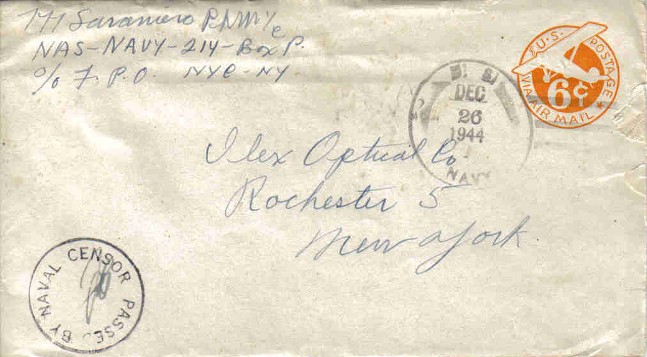 M Saraniero PhM 1/c
NAS-NAVY-214-Box P.
c/o F.P.O. NYC-NY
U.S. POSTAGE
6¢
VIA AIR MAIL
DEC
26
1944
NAVY
Ilex Optical Co
Rochester 5
New York
PASSED BY NAVAL CENSOR